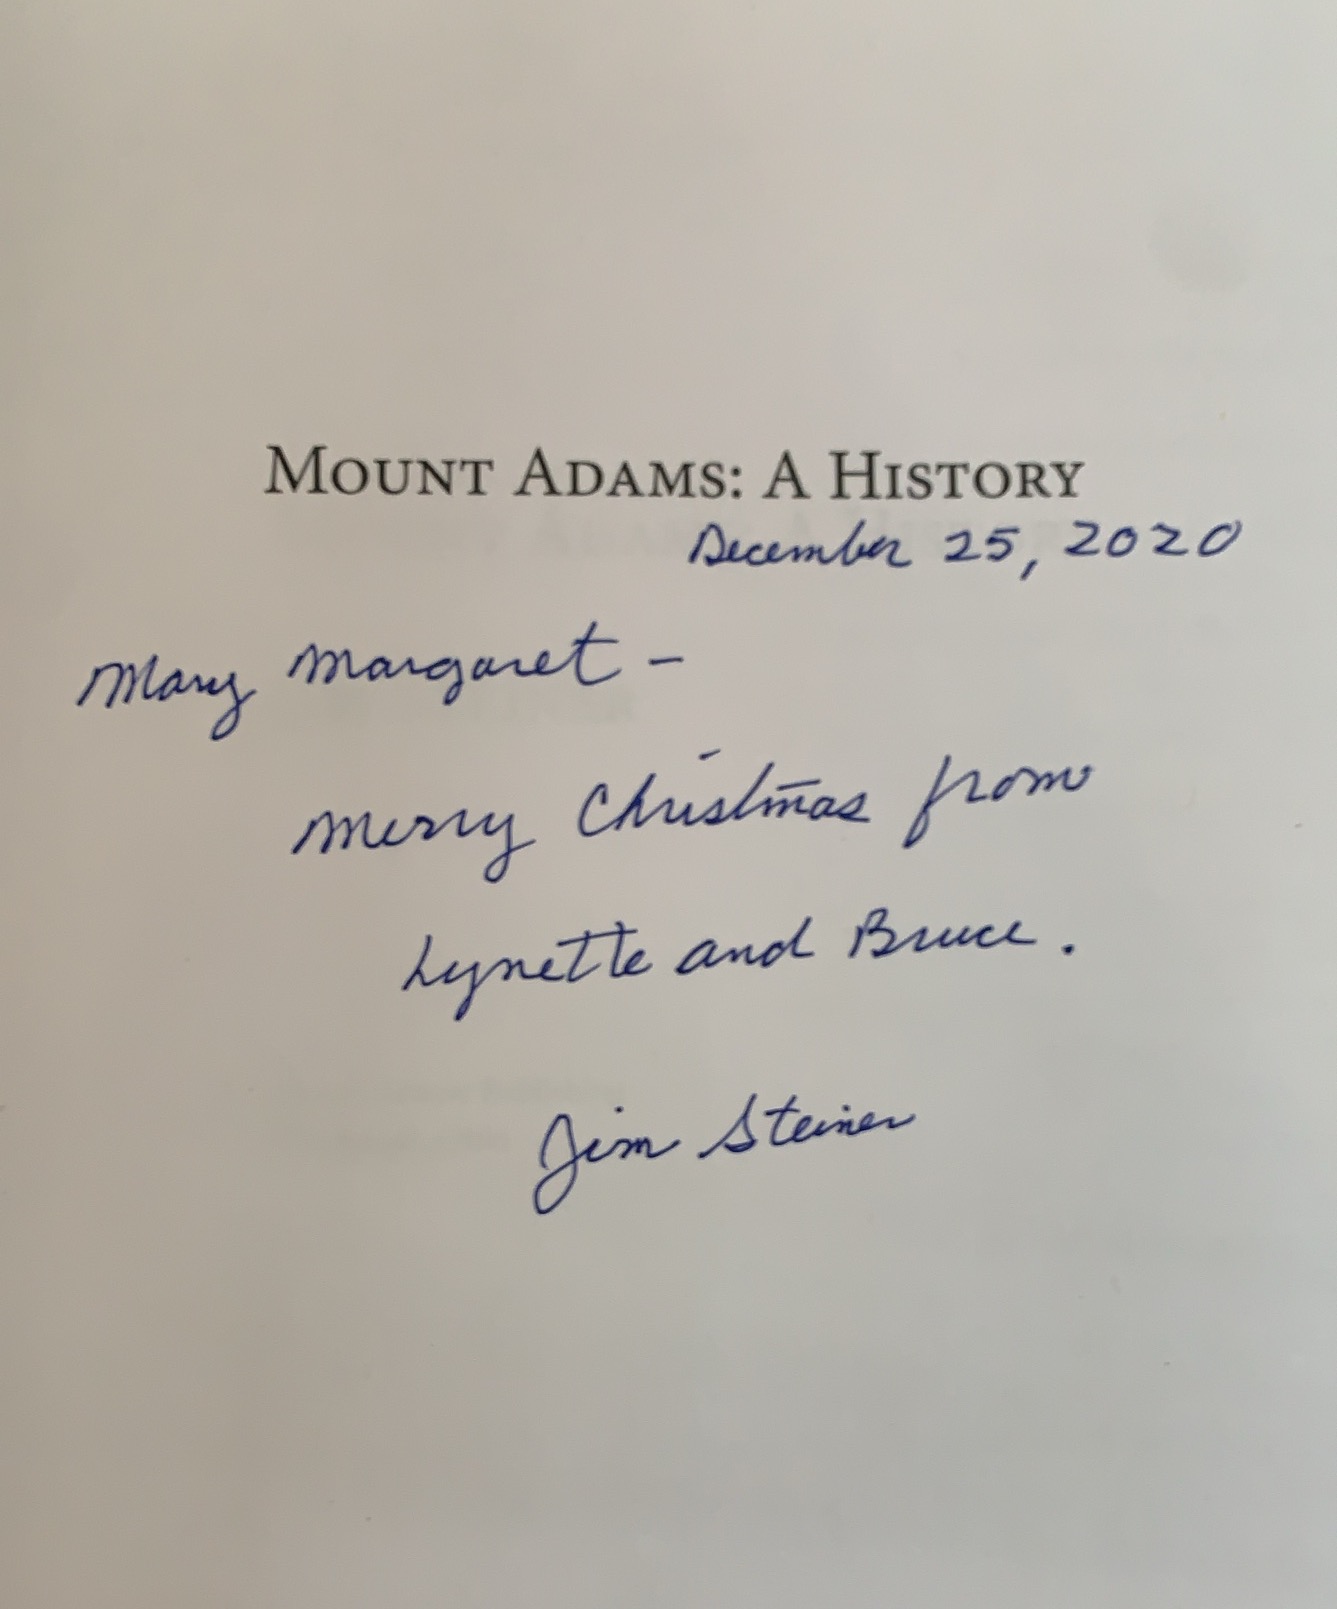 MOUNT ADAMS: A HISTORY
December 25, 2020
Mary Margaret -
Merry Christmas from
Lynette and Bruce.
Jim Steiner